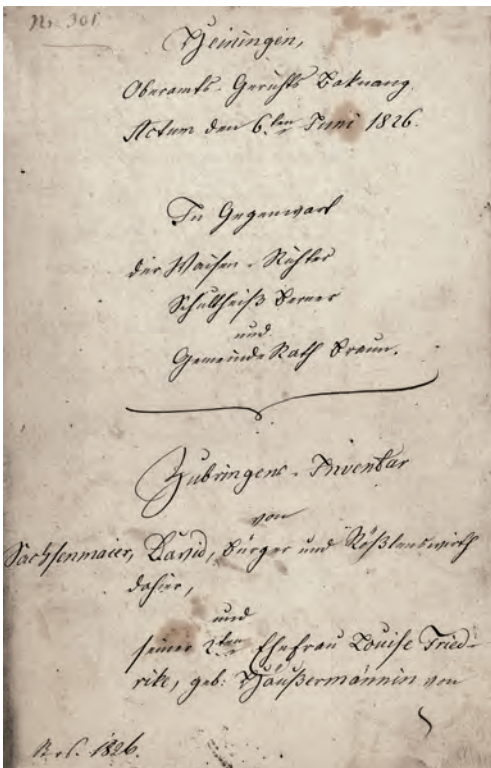 Nr. 301.
Heiningen,
Oberamts-Gerichts Baknang.
Actum den 6ten Juni 1826.
In Gegenwart
der Waisen-Richter
Schultheiß Berner
und
Gemeinde Rath Braun.
Zubringens-Inventar
von
Sachsenmaier, David, Bürger und Rößlenswirth
dahier,
und
seiner 2ten Ehefrau Louise Fried-
rike, geb: Häußermännin von
1826.